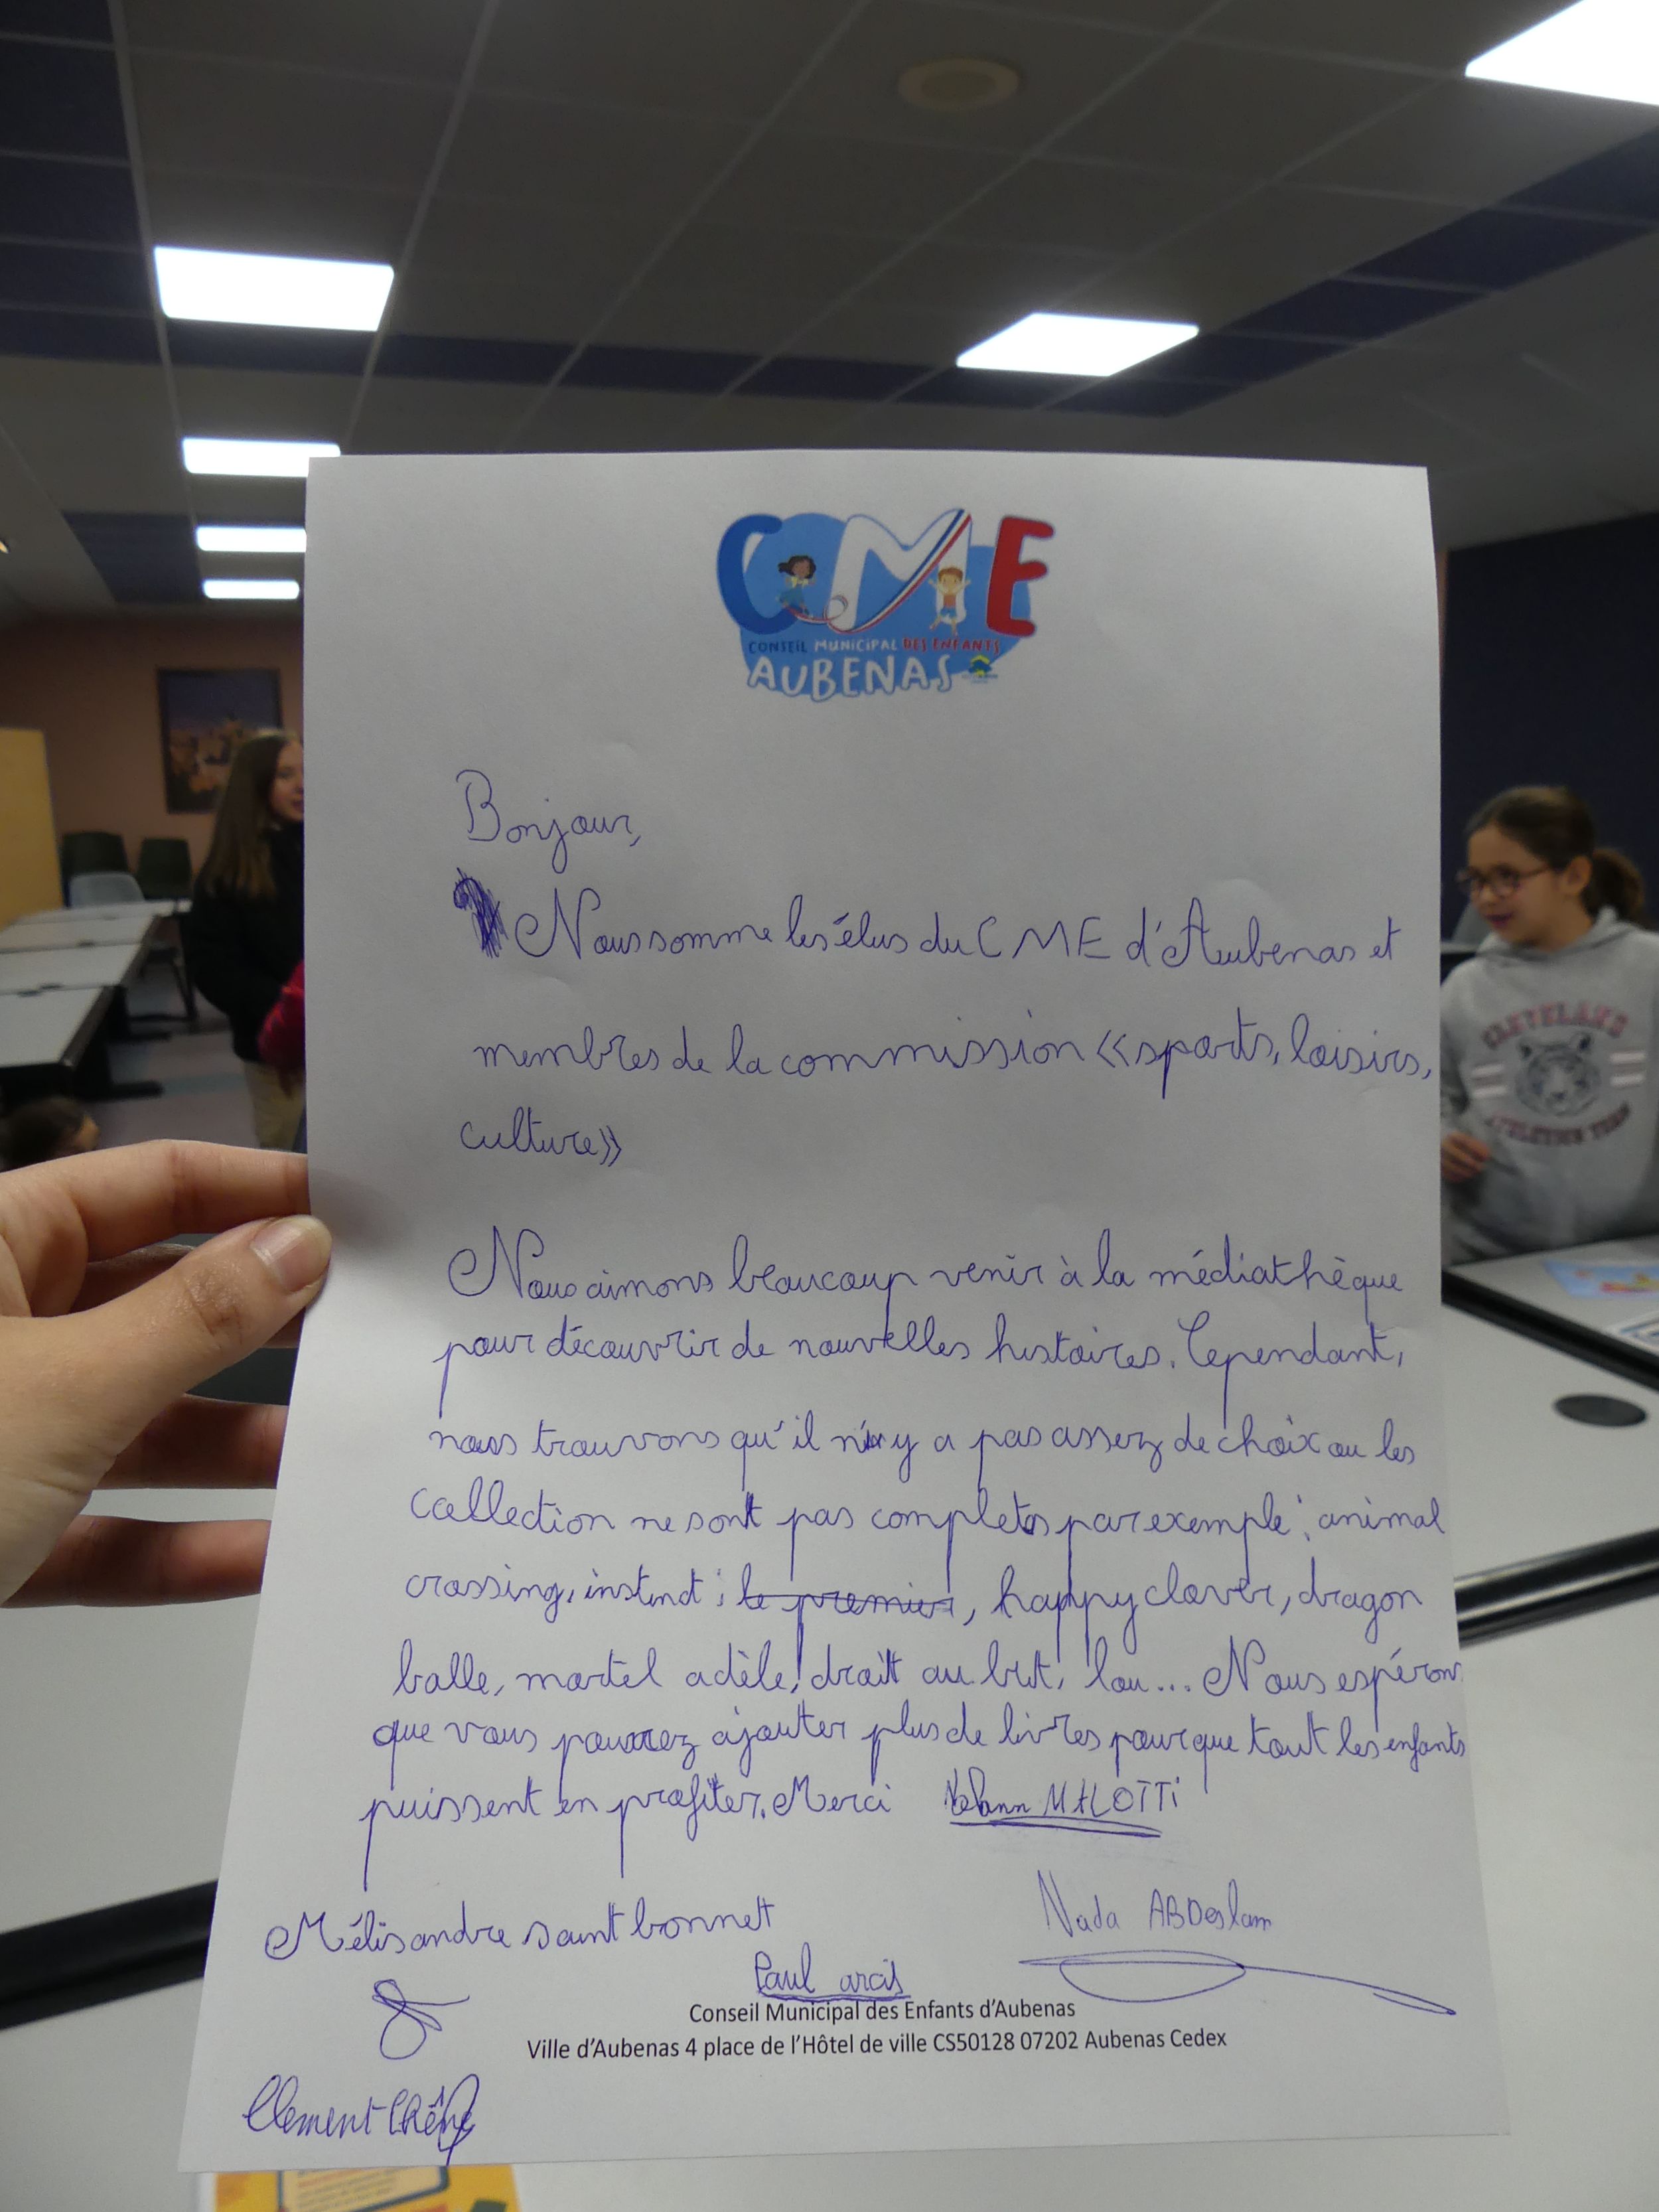 CME
CONSEIL MUNICIPAL DES ENFANTS
AUBENAS
Bonjour,
Nous somme les élus du CME d'Aubenas et
membres de la commission «sports, loisirs,
culture»
Nous aimons beaucoup venir à la médiathèque
pour découvrir de nouvelles histoires. Cependant,
nous trouvons qu'il n'y a pas assez de choix ou les
collection ne sont pas completes par exemple : animal
crossing, instinct, le premier, happy clover, dragon
balle, mortel adèle, droit au but, lou... Nous espérons
que vous pourrez ajouter plus de livres pour que tout les enfants
puissent en profiter. Merci MALOTTi
Mélisandre saint bonnet
Nada ABDeslam
Paul arcis
Conseil Municipal des Enfants d'Aubenas
Ville d'Aubenas 4 place de l'Hôtel de ville CS50128 07202 Aubenas Cedex
Clement Chêne
CLEVELAND